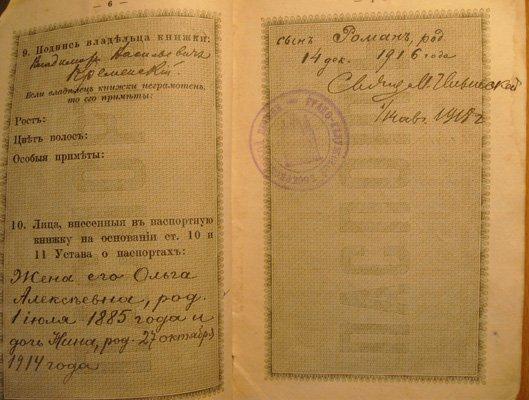 — 6 —
9. Подпись владѣльца книжки:
Владимiръ Васильевичъ
Кременскій.
Если владѣлецъ книжки неграмотенъ,
то его примѣты:
Ростъ:
Цвѣтъ волосъ:
Особыя примѣты:
10. Лица, внесенныя въ паспортную
книжку на основаніи ст. 10 и
11 Устава о паспортахъ:
Жена его Ольга
Алексѣевна, род.
1 іюля 1885 года и
дочь Нина, род. 27 октября
1914 года
сынъ Романъ, род.
14 дек. 1916 года
1918 г
ПАСПОРТ